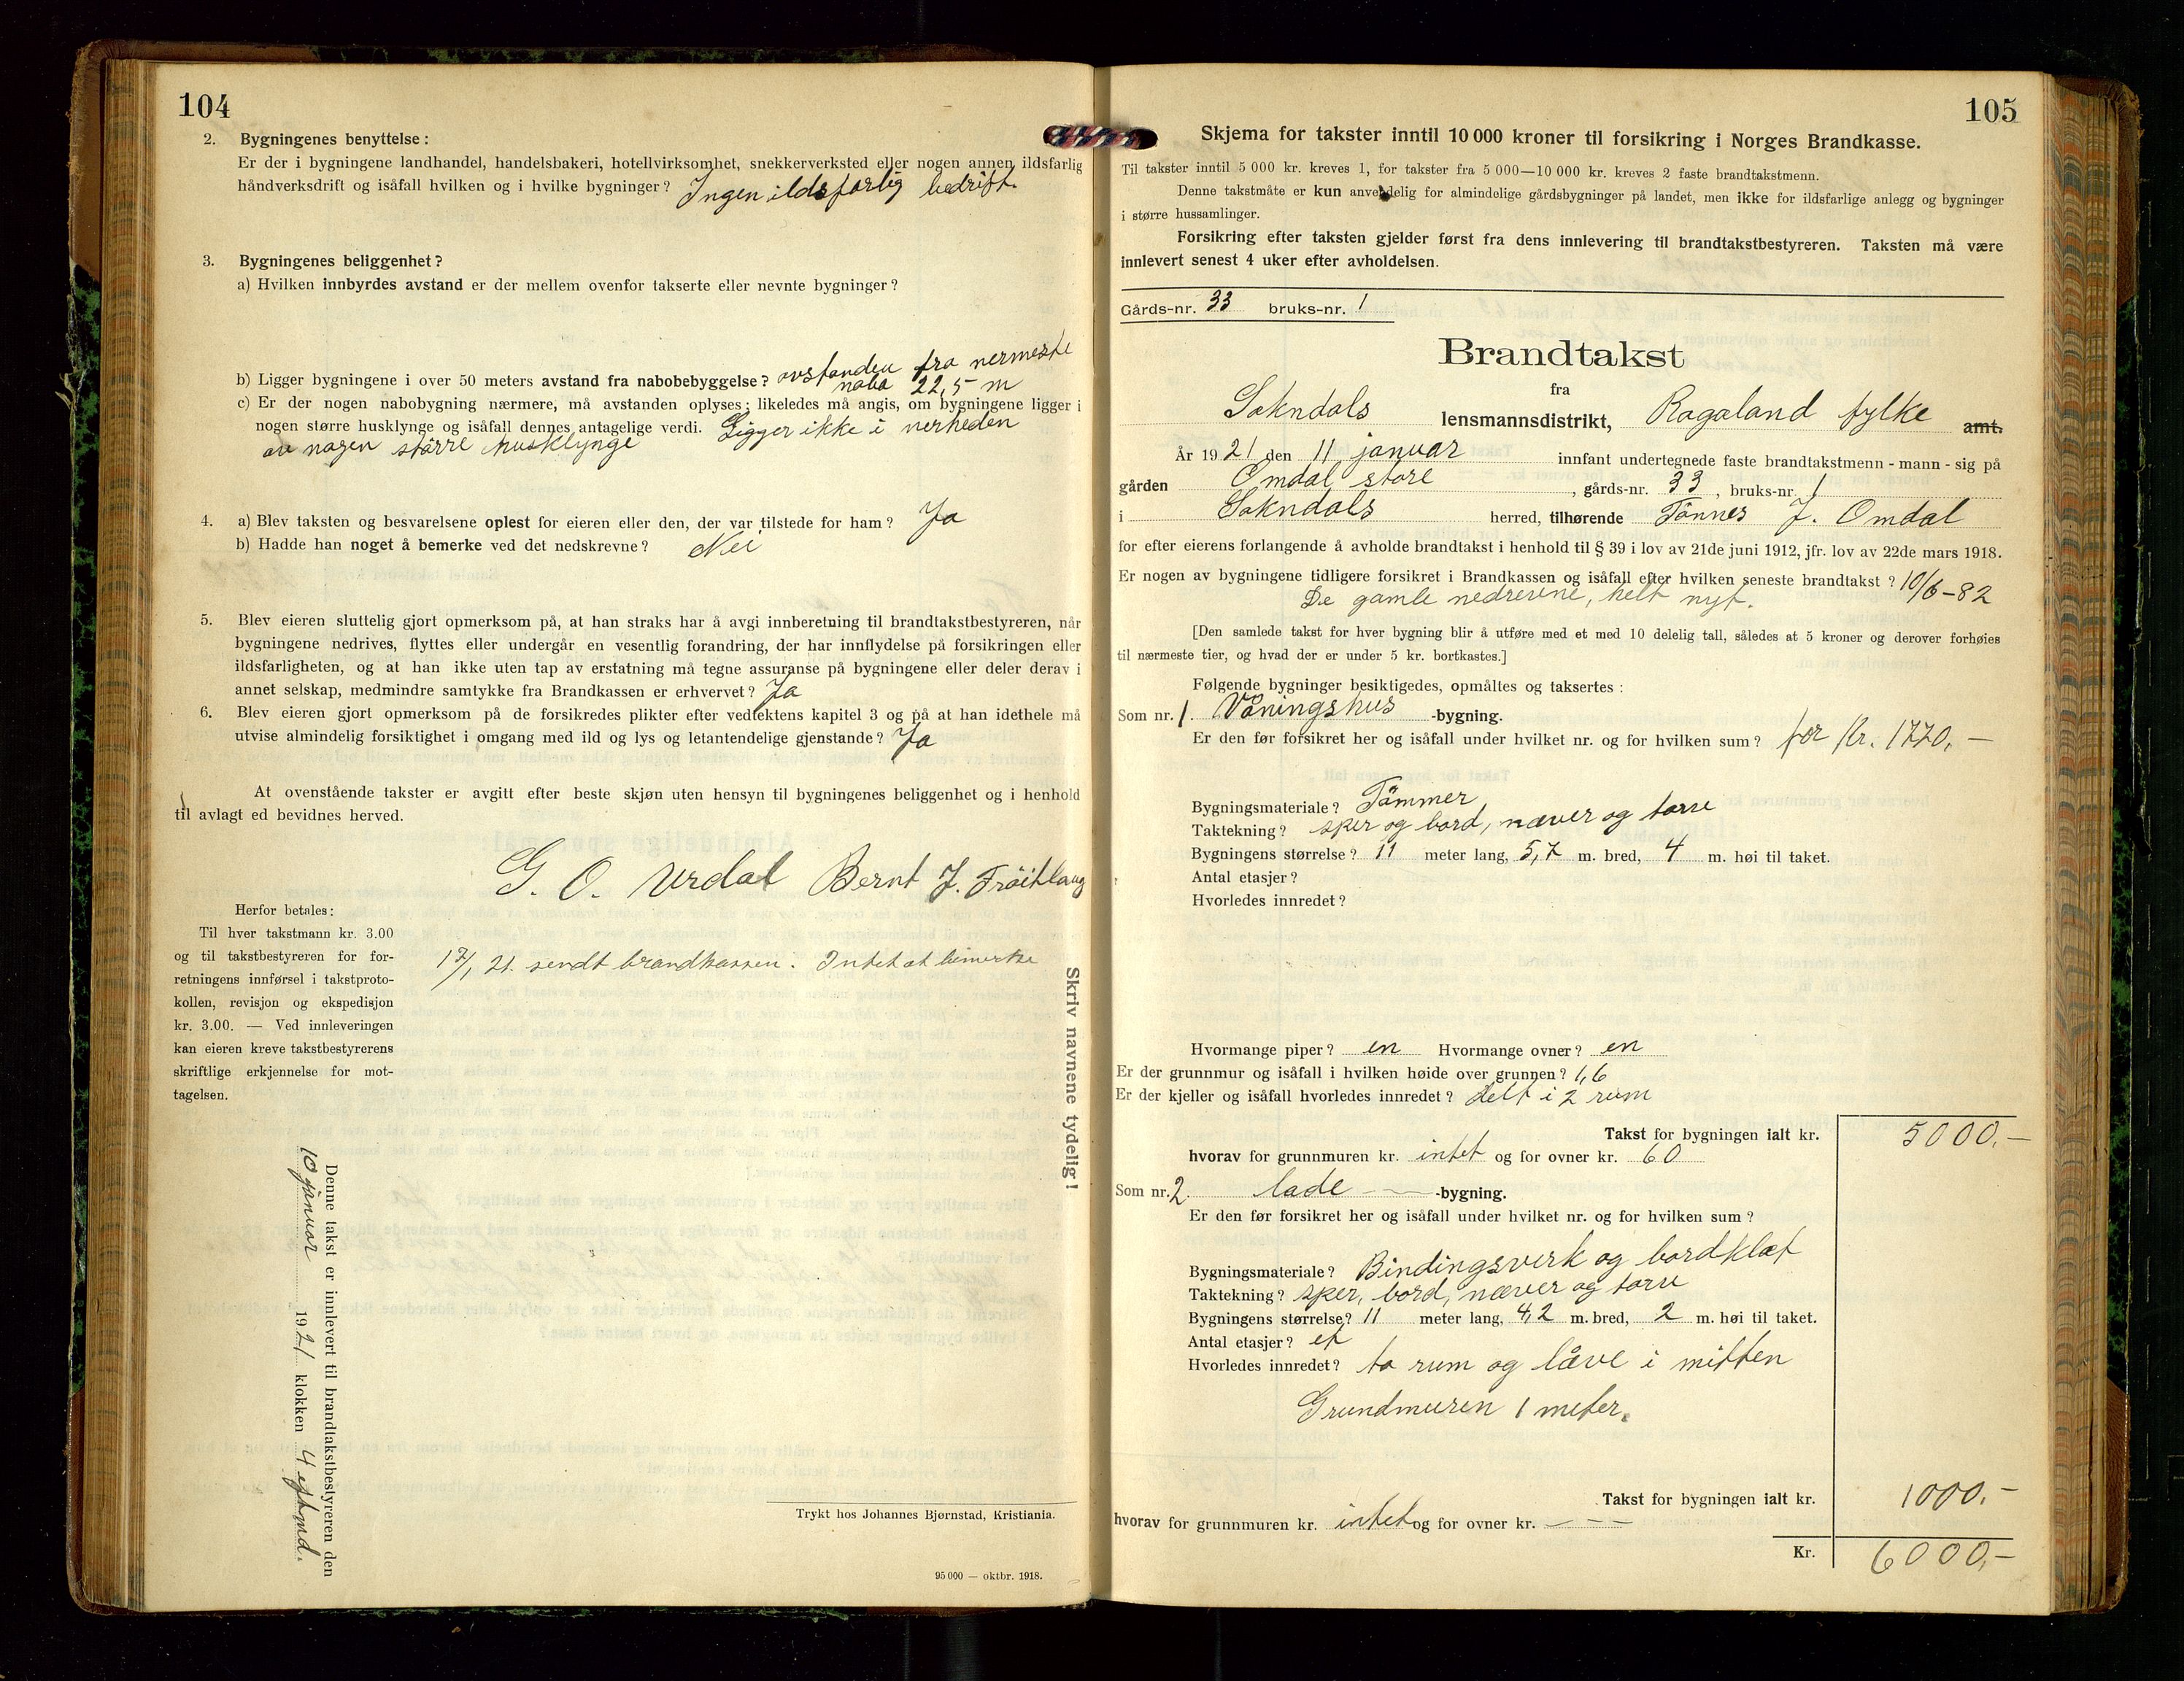 104
2. Bygningenes benyttelse:
Er der i bygningene landhandel, handelsbakeri, hotellvirksomhet, snekkerverksted eller nogen annen ildsfarlig
håndverksdrift og isåfall hvilken og i hvilke bygninger? Ingen ildsfarlig bedrift.
3. Bygningenes beliggenhet?
a) Hvilken innbyrdes avstand er der mellem ovenfor takserte eller nevnte bygninger?
b) Ligger bygningene i over 50 meters avstand fra nabobebyggelse? avstanden fra nermeste
nabo 22,5 m
c) Er der nogen nabobygning nærmere, må avstanden oplyses; likeledes må angis, om bygningene ligger i
nogen større husklynge og isåfall dennes antagelige verdi. Ligger ikke i nerheden
av nogen større husklynge
4. a) Blev taksten og besvarelsene oplest for eieren eller den, der var tilstede for ham? Ja
b) Hadde han noget å bemerke ved det nedskrevne? Nei
5. Blev eieren sluttelig gjort opmerksom på, at han straks har å avgi innberetning til brandtakstbestyreren, når
bygningene nedrives, flyttes eller undergår en vesentlig forandring, der har innflydelse på forsikringen eller
ildsfarligheten, og at han ikke uten tap av erstatning må tegne assuranse på bygningene eller deler derav i
annet selskap, medmindre samtykke fra Brandkassen er erhvervet? Ja
6. Blev eieren gjort opmerksom på de forsikredes plikter efter vedtektens kapitel 3 og på at han idethele må
utvise almindelig forsiktighet i omgang med ild og lys og letantendelige gjenstande? Ja
At ovenstående takster er avgitt efter beste skjøn uten hensyn til bygningenes beliggenhet og i henhold
til avlagt ed bevidnes herved.
G. O. Urdal Bernt J. Fröitlaug
Herfor betales:
Til hver takstmann kr. 3.00
og til takstbestyreren for for-
retningens innførsel i takstproto-
kollen, revisjon og ekspedisjon
kr. 3.00. — Ved innleveringen
kan eieren kreve takstbestyrerens
skriftlige erkjennelse for mot-
tagelsen.
21. sendt brandkassen. Intet at bemerke
Skriv navnene tydelig!
Denne takst er innlevert til brandtakstbestyreren den
10 januar 1921 klokken 4 eftmd.
Trykt hos Johannes Bjørnstad, Kristiania.
95 000 — oktbr. 1918.
105
Skjema for takster inntil 10 000 kroner til forsikring i Norges Brandkasse.
Til takster inntil 5 000 kr. kreves 1, for takster fra 5 000—10 000 kr. kreves 2 faste brandtakstmenn.
Denne takstmåte er kun anvendelig for almindelige gårdsbygninger på landet, men ikke for ildsfarlige anlegg og bygninger
i større hussamlinger.
Forsikring efter taksten gjelder først fra dens innlevering til brandtakstbestyreren. Taksten må være
innlevert senest 4 uker efter avholdelsen.
Gårds-nr. 33 bruks-nr. 1
Brandtakst
fra
Sokndals lensmannsdistrikt, Rogaland fylke amt.
År 1921 den 11 januar innfant undertegnede faste brandtakstmenn - mann - sig på
gården Omdal store, gårds-nr. 33, bruks-nr. 1
i Sokndals herred, tilhørende Tönnes J. Omdal
for efter eierens forlangende å avholde brandtakst i henhold til § 39 i lov av 21de juni 1912, jfr. lov av 22de mars 1918.
Er nogen av bygningene tidligere forsikret i Brandkassen og isåfall efter hvilken seneste brandtakst? 10/6-82
De gamle nedrevne, helt nyt.
[Den samlede takst for hver bygning blir å utføre med et med 10 delelig tall, således at 5 kroner og derover forhøies
til nærmeste tier, og hvad der er under 5 kr. bortkastes.]
Følgende bygninger besiktigedes, opmåltes og taksertes:
Som nr. 1. Våningshus -bygning.
Er den før forsikret her og isåfall under hvilket nr. og for hvilken sum? for kr. 1770,—
Bygningsmateriale? Tömmer
Taktekning? sper og bord, næver og torre
Bygningens størrelse? 11 meter lang, 5,7 m. bred, 4 m. høi til taket.
Antal etasjer?
Hvorledes innredet?
Hvormange piper? en Hvormange ovner? en
Er der grunnmur og isåfall i hvilken høide over grunnen? 1,6
Er der kjeller og isåfall hvorledes innredet? delt i 2 rum
Takst for bygningen ialt kr. 5000,—
hvorav for grunnmuren kr. intet og for ovner kr. 60
Som nr. 2 lade -bygning.
Er den før forsikret her og isåfall under hvilket nr. og for hvilken sum?
Bygningsmateriale? Bindingsverk og bordklæt
Taktekning? sper, bord, næver og torre
Bygningens størrelse? 11 meter lang, 4,2 m. bred, 2 m. høi til taket.
Antal etasjer? et
Hvorledes innredet? to rum og låve i mitten
Grundmuren 1 meter.
Takst for bygningen ialt kr. 1000.—
hvorav for grunnmuren kr. intet og for ovner kr. — — —
Kr. 6000,—